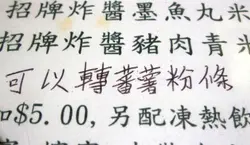 招牌炸醬墨魚丸米
招牌炸醬豬肉青米
可以轉蕃薯粉條
$5.00, 另配凍熱飲